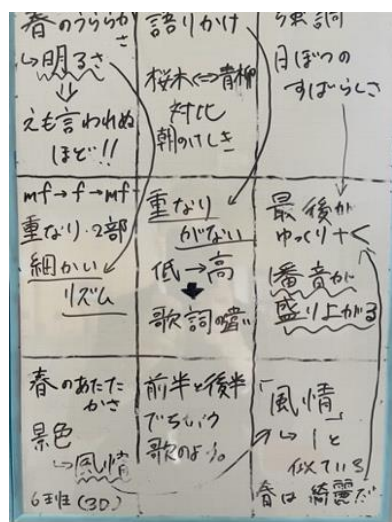 春のうららかさ
↳明るさ
⇓
えも言われぬ
ほど!!
語りかけ
桜木⇔青柳
対比
朝のけしき
歌詞
日ぼつの
すばらしさ
mf→f→mf
重なり・2部
細かい
リズム
重なり
がない
低→高
歌詞の違い
最後が
ゆっくり+く
1番音が
盛り上がる
春のあたた
かさ
景色
↳風情
6班(3D)
前半と後半
でちがう
歌のよう。
「風情」
↳1と
似ている
春は綺麗だ